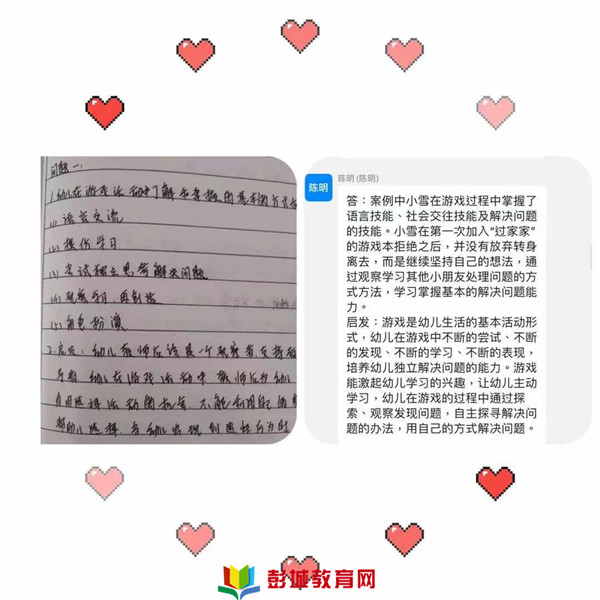 问题一:
1.幼儿在游戏活动中了解和掌握的基本的方式
(1).语言交流
(2).模仿学习
(3).尝试独立思考解决问题
(4).观察学习 再创造
(5).角色扮演
2.启发:幼儿教师应该是一个观察者支持
幼儿在游戏活动中 教师应为幼儿
自由选择活动的
帮幼儿选择
陈明
陈明 (陈明)
答：案例中小雪在游戏过程中掌握了
语言技能、社会交往技能及解决问题
的技能。小雪在第一次加入“过家家”
的游戏本拒绝之后，并没有放弃转身
离去，而是继续坚持自己的想法，通
过观察学习其他小朋友处理问题的方
式方法，学习掌握基本的解决问题能
力。
启发：游戏是幼儿生活的基本活动形
式，幼儿在游戏中不断的尝试、不断
的发现、不断的学习、不断的表现，
培养幼儿独立解决问题的能力。游戏
能激起幼儿学习的兴趣，让幼儿主动
学习，幼儿在游戏的过程中通过探
索、观察发现问题，自主探寻解决问
题的办法，用自己的方式解决问题。
彭城教育网